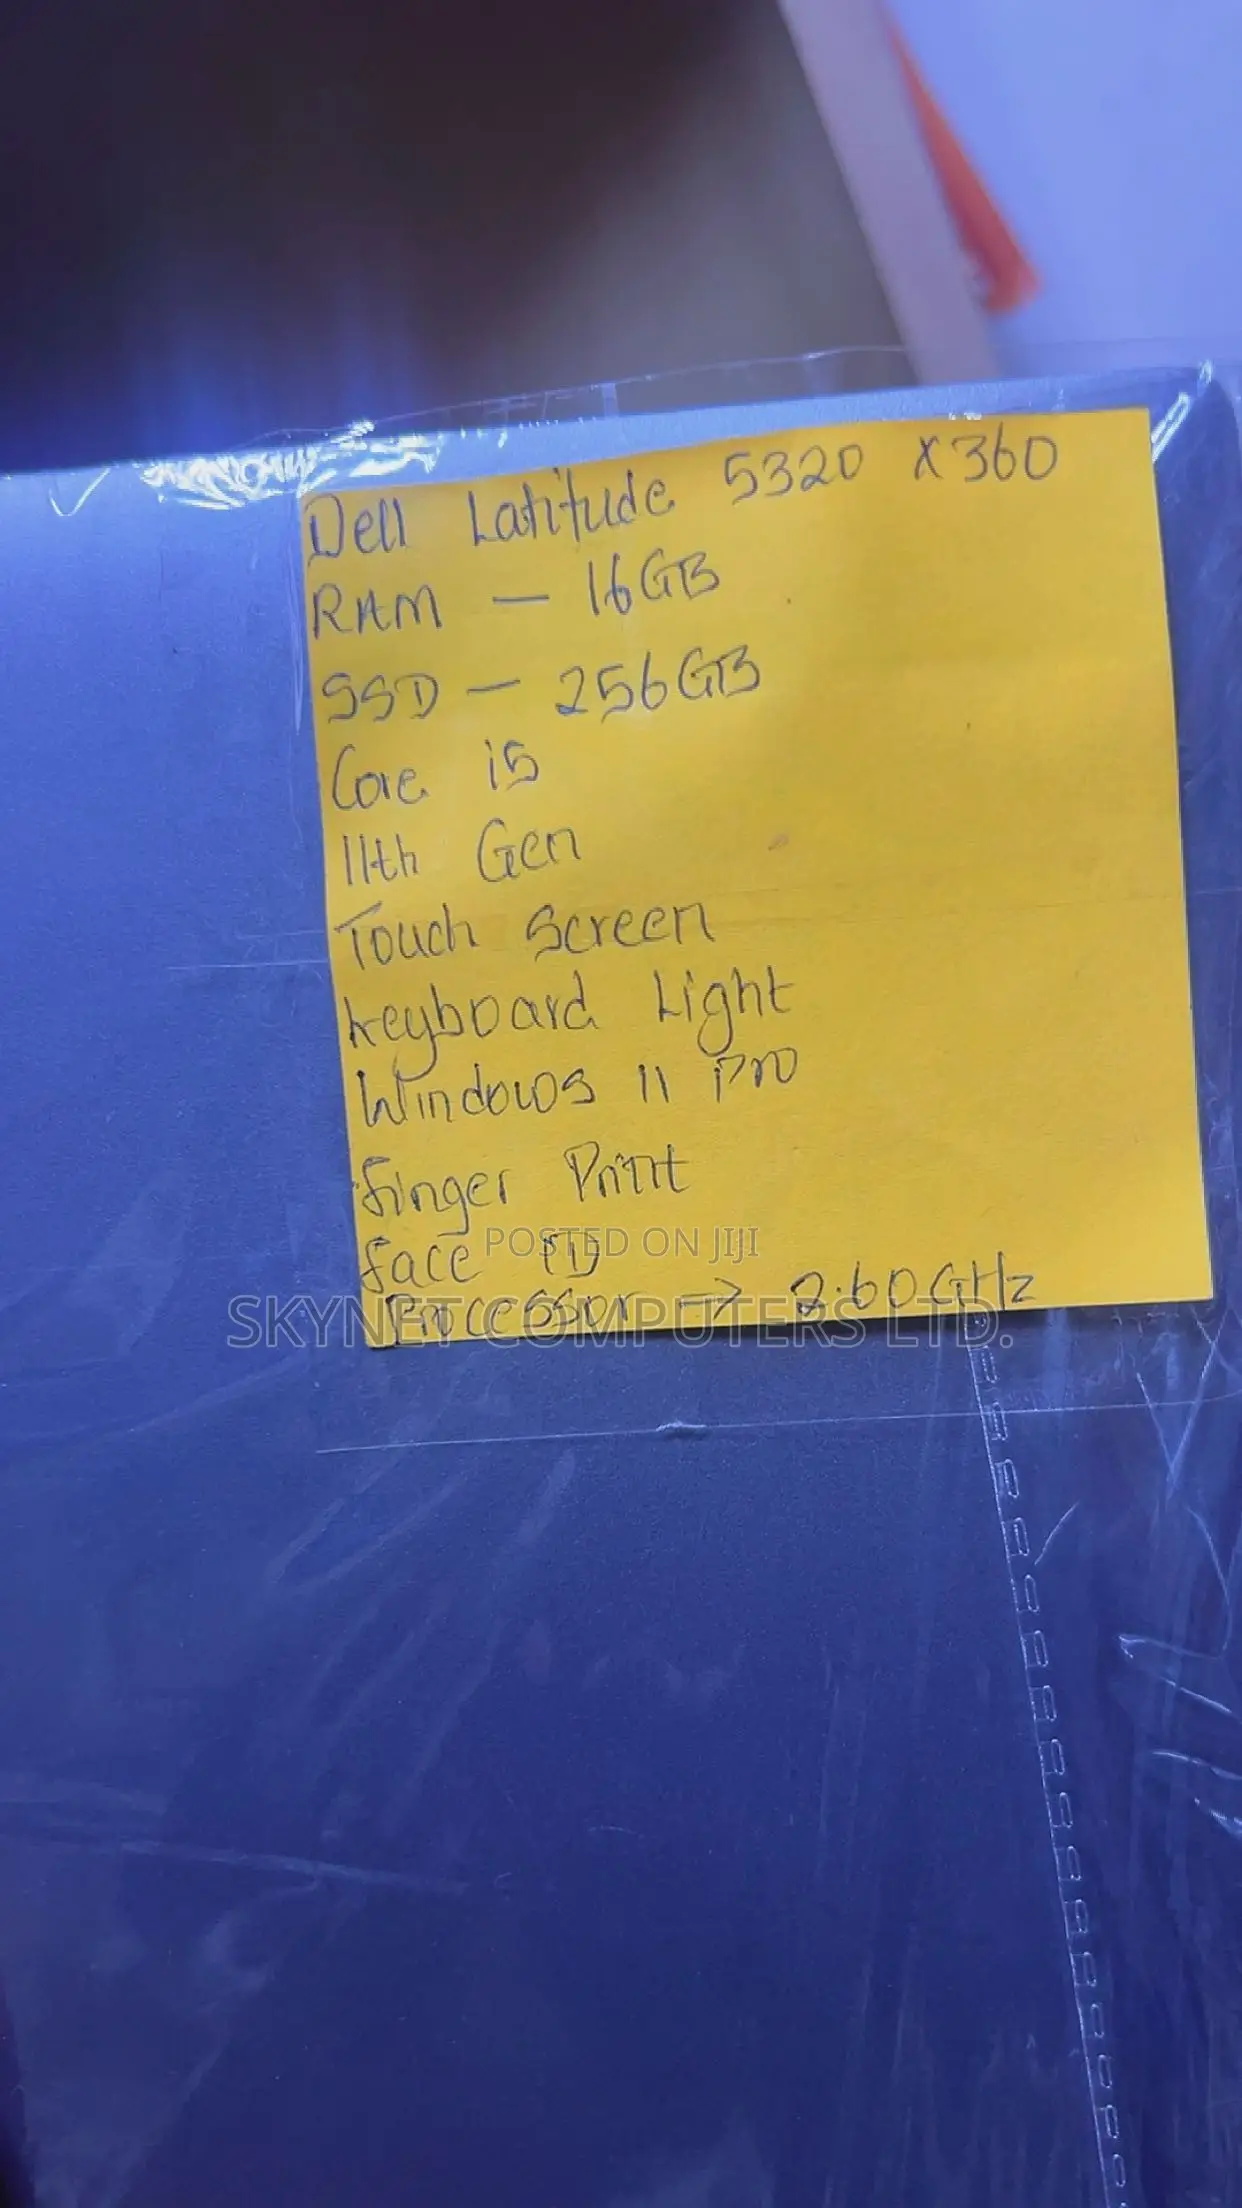 Dell Latitude 5320 X360
RAM — 16GB
SSD — 256GB
Core i5
11th Gen
Touch Screen
keyboard Light
Windows 11 Pro
finger Print
face ID
Processor → 2.60GHz
POSTED ON JIJI
SKYNET COMPUTERS LTD.